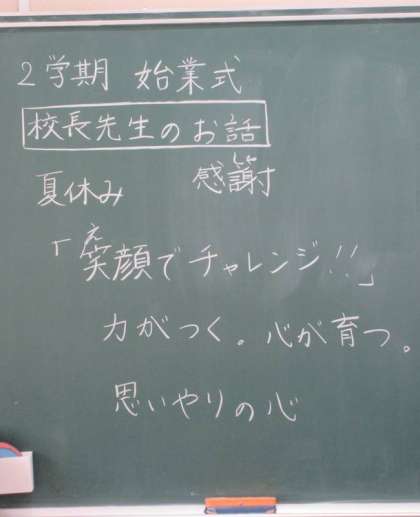 2学期 始業式
校長先生のお話
夏休み 感謝
「笑顔でチャレンジ!!」
力がつく。心が育つ。
思いやりの心